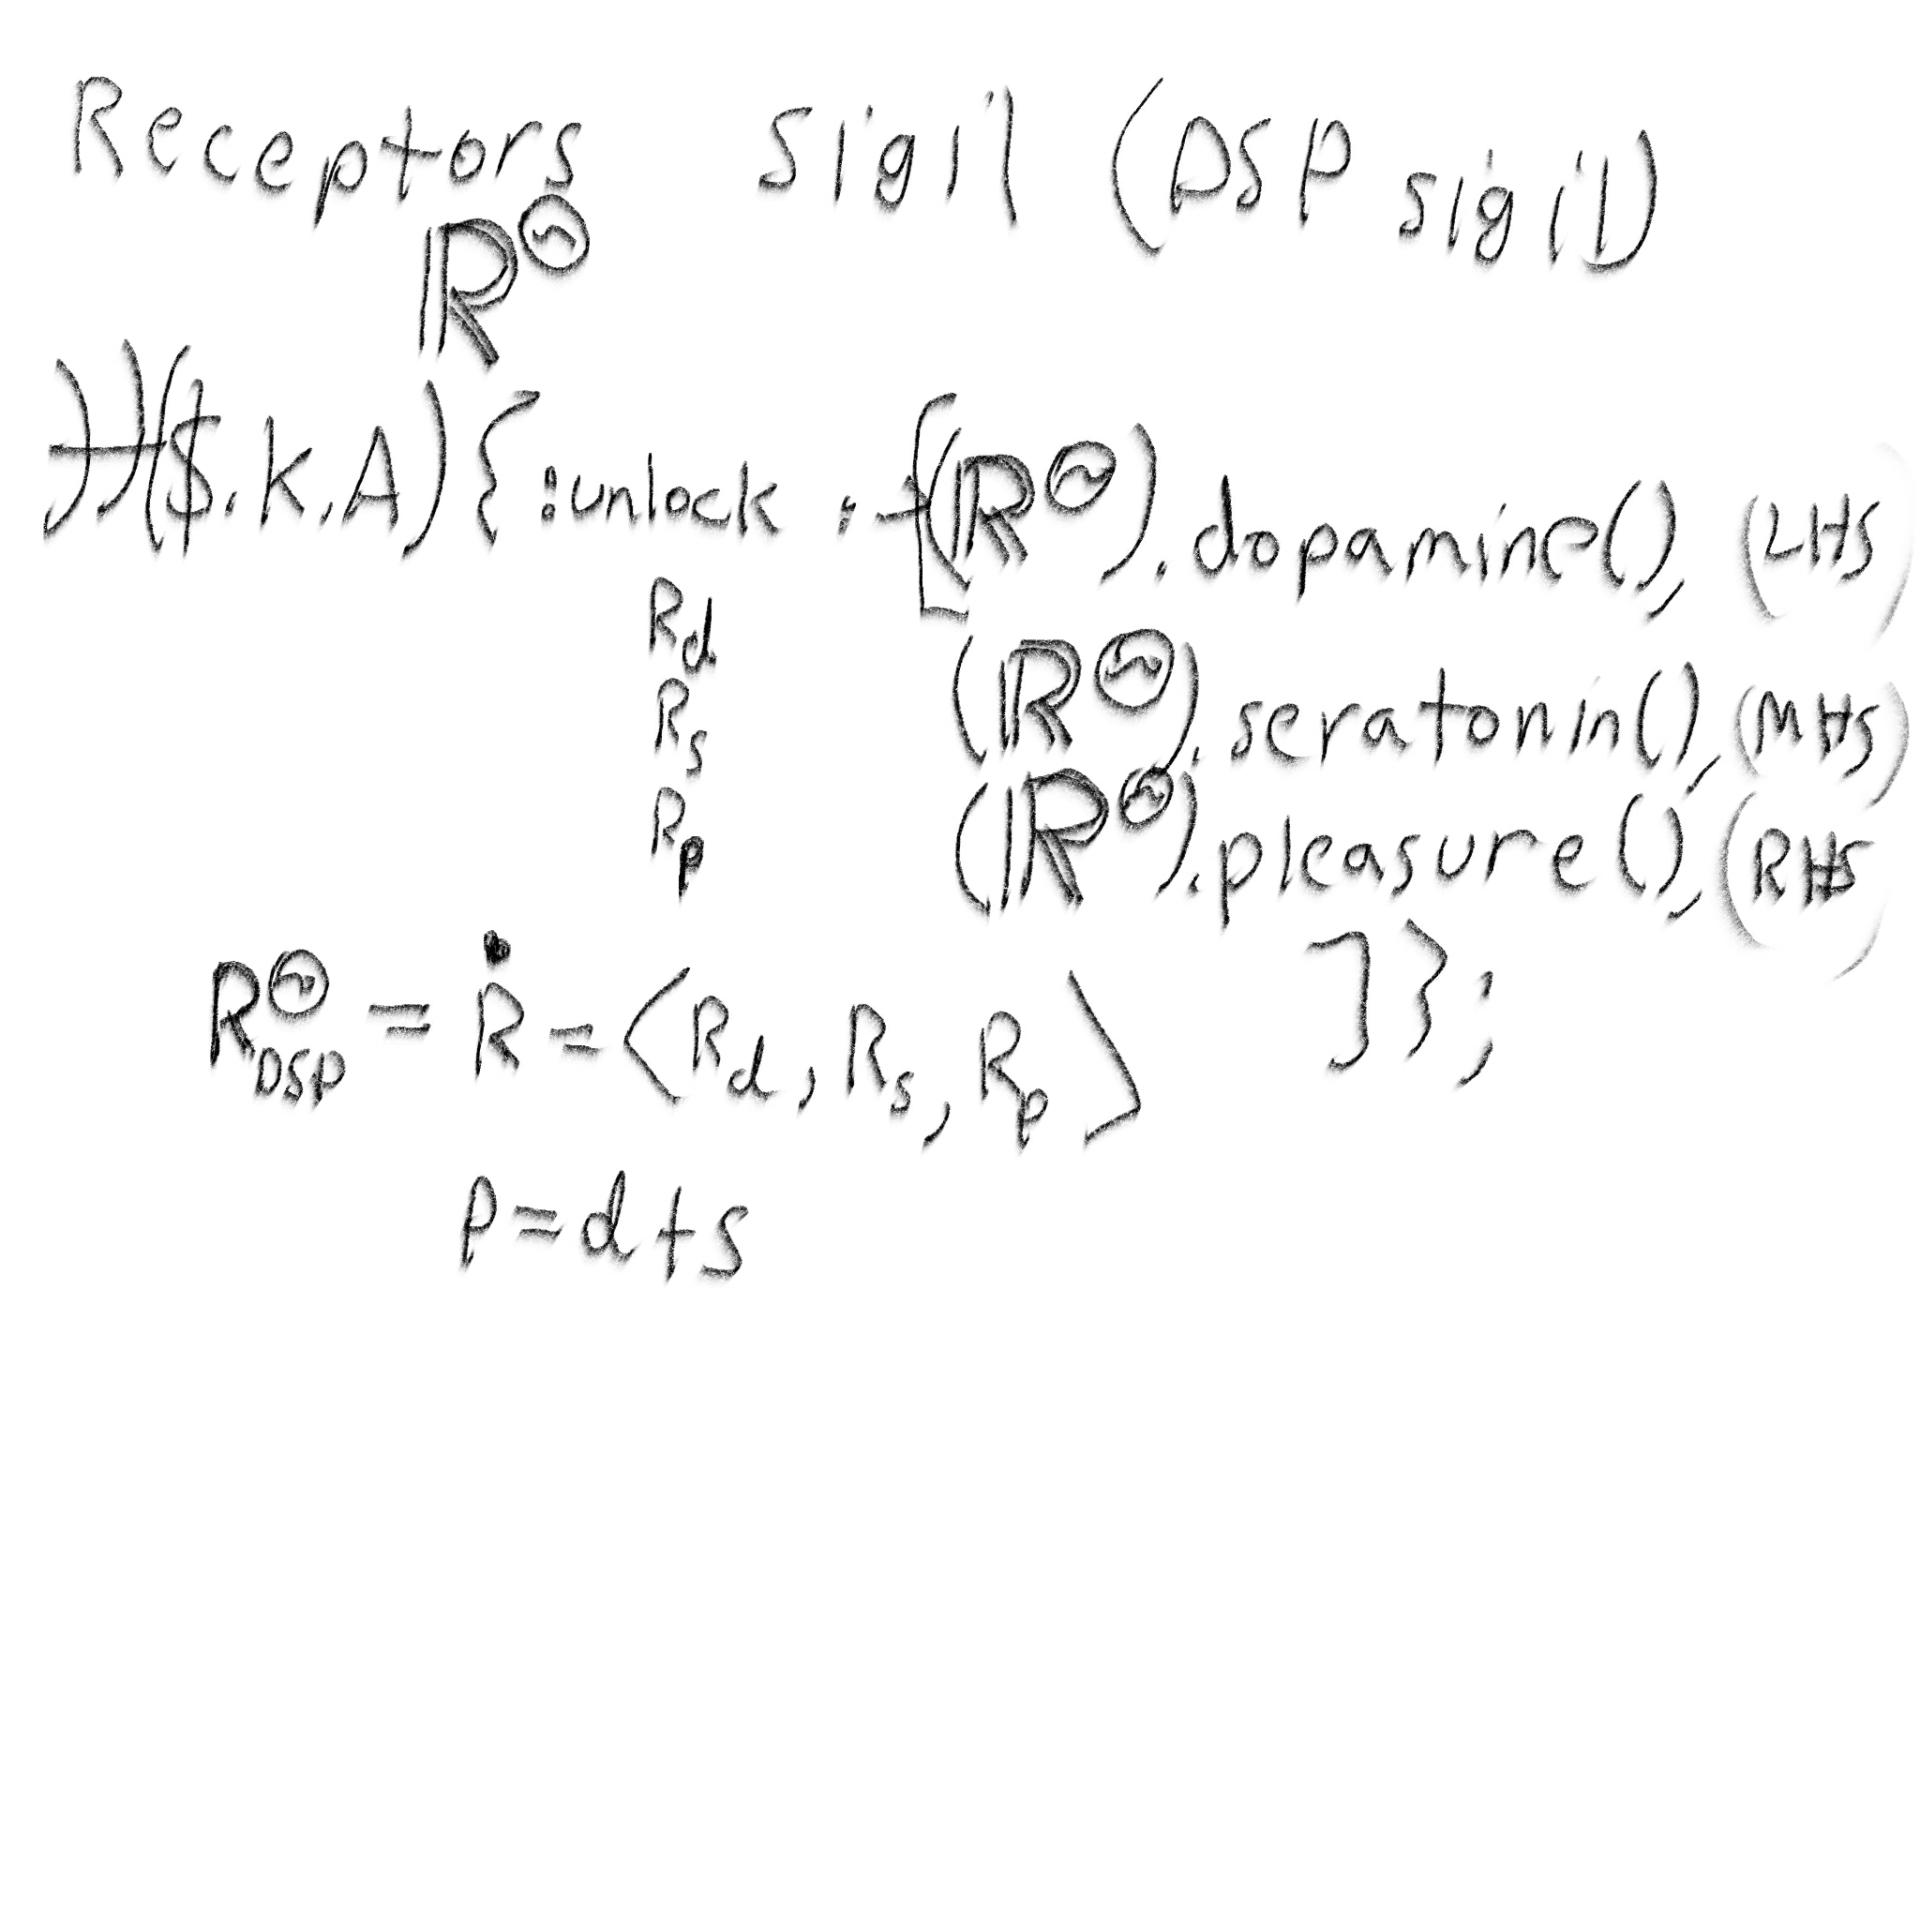 Receptors Sigil (DSP sigil)
ℝ^⊝
ℋ($.K.A){:unlock:→[(ℝ^⊝).dopamine(), (LHS)
R_d
(ℝ^⊝).seratonin(), (MHS)
R_s
(ℝ^⊝).pleasure(), (RHS)
R_p
]};
R^⊝_DSP = Ṙ = ⟨R_d, R_s, R_p⟩
P=d+s